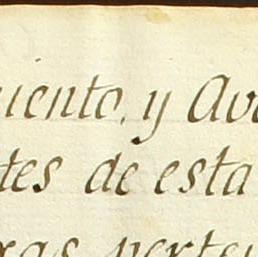 iento, y Av
tes de esta
ras perte